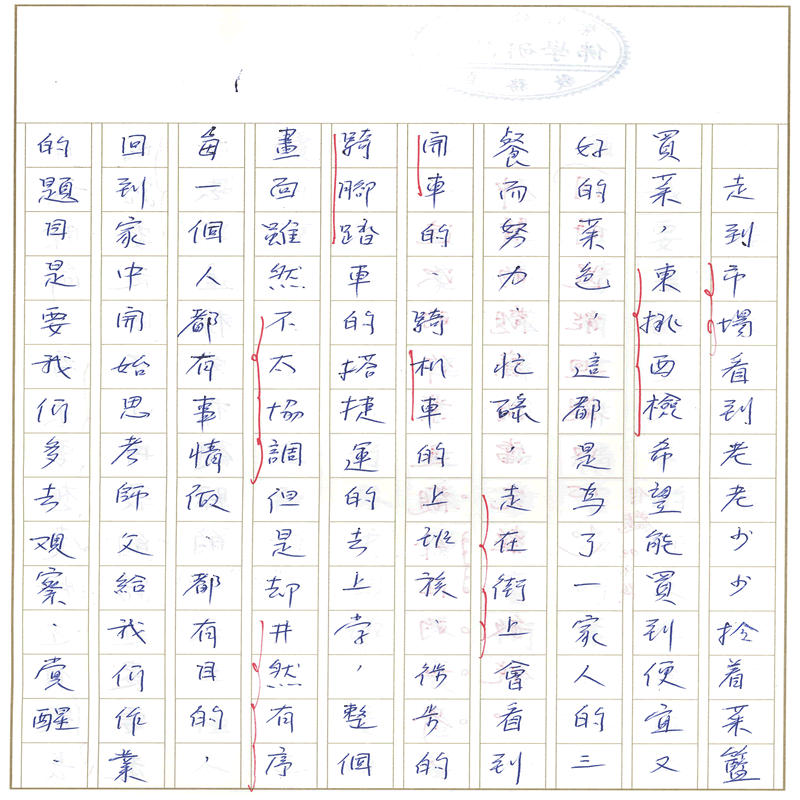 走到市場看到老老少少拎着菜籃
買菜，東挑西檢希望能買到便宜又
好的菜色，這都是為了一家人的三
餐而努力．忙碌，走在街上會看到
開車的．騎机車的上班族．徒步的
騎腳踏車的搭捷運的去上学，整個
畫面雖然不太協調但是却井然有序
每一個人都有事情做．都有目的，
回到家中開始思考師父給我们作業
的題目是要我们多去观察．覺醒．